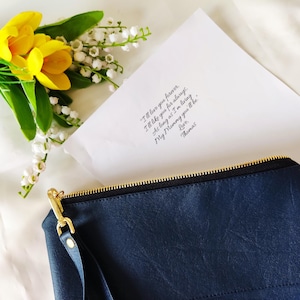 I'll love you forever,
I'll like you for always,
As long as I'm living
My Mommy you'll be.
Love,
Thomas